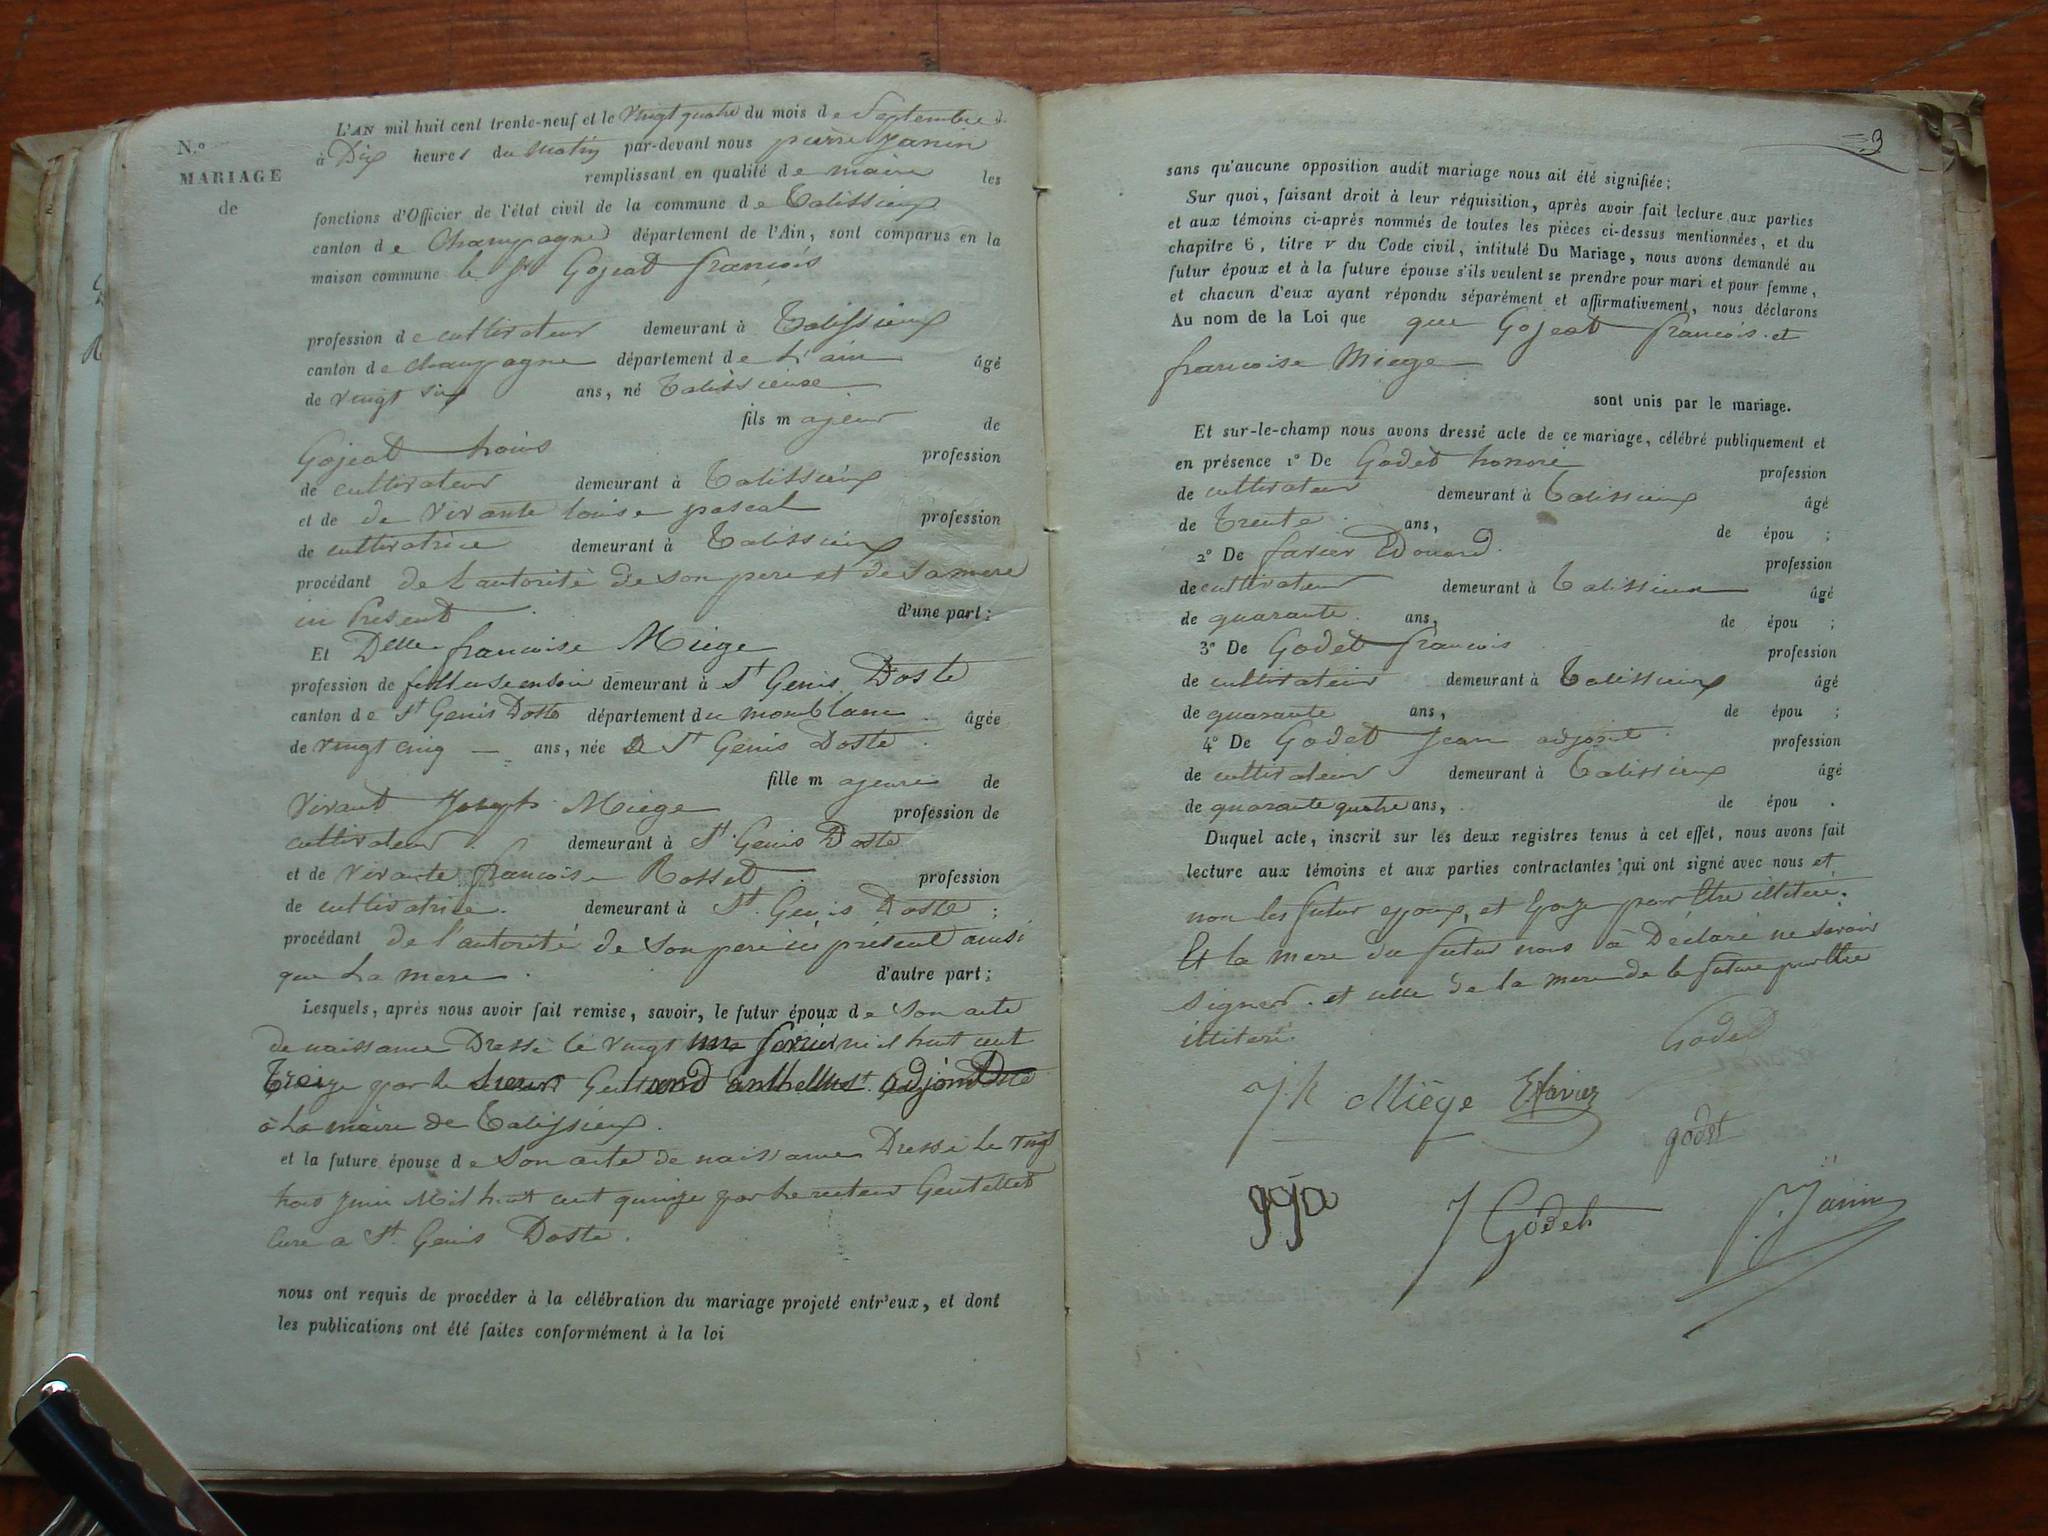 N.º
MARIAGE
de
L'AN mil huit cent trente-neuf et le vingt quatre du mois de Septembre
à Dix heures du matin par-devant nous pierre Janin
remplissant en qualité de maire les
fonctions d'Officier de l'état civil de la commune de Talissieux
canton de Champagne département de l'Ain, sont comparus en la
maison commune le Sr Gojeat françois
profession de cultivateur demeurant à Talissieux
canton de champagne département de L'ain âgé
de vingt six ans, né Talissieux
fils majeur de
Gojeat Louis profession
de cultivateur demeurant à Talissieux
et de de vivante louise pascal profession
de cultivatrice demeurant à Talissieux
procédant de L'autorité de son pere et de Sa mere
ici Présent d'une part;
Et Delle francoise Miege
profession de demeurant à St Genis Doste
canton de St Genis Doste département du monblanc âgée
de vingt cinq ans, née à St Genis Doste
fille majeure de
vivant Joseph Miege profession de
cultivateur demeurant à St Genis Doste
et de vivante francoise Rosset profession
de cultivatrice demeurant à St Genis Doste ;
procédant de l'autorité de Son pere ici présent ainsi
que La mere d'autre part;
Lesquels, après nous avoir fait remise, savoir, le futur époux de Son acte
de naissance Dressé le vingt mil huit cent
Treize par le adjoint
à La mairie de Talissieux.
et la future épouse de Son acte de naissance Dressé le vingt
trois Juin Mil huit cent quinze par le recteur Gentellet
Cure a St Genis Doste.
nous ont requis de procéder à la célébration du mariage projeté entr'eux, et dont
les publications ont été faites conformément à la loi
3
sans qu'aucune opposition audit mariage nous ait été signifiée;
Sur quoi, faisant droit à leur réquisition, après avoir fait lecture aux parties
et aux témoins ci-après nommés de toutes les pièces ci-dessus mentionnées, et du
chapitre 6, titre v du Code civil, intitulé Du Mariage, nous avons demandé au
futur époux et à la future épouse s'ils veulent se prendre pour mari et pour femme,
et chacun d'eux ayant répondu séparément et affirmativement, nous déclarons
Au nom de la Loi que que Gojeat francois et
francoise Miege
sont unis par le mariage.
Et sur-le-champ nous avons dressé acte de ce mariage, célébré publiquement et
en présence 1º De Godet honoré profession
de cultivateur demeurant à Talissieux âgé
de Trente ans, de épou ;
2º De favier Edouard profession
de cultivateur demeurant à Talissieux âgé
de quarante ans, de épou ;
3º De Godet francois profession
de cultivateur demeurant à Talissieux âgé
de quarante ans, de épou ;
4º De Godet Jean adjoint profession
de cultivateur demeurant à Talissieux âgé
de quarante quatre ans, de épou .
Duquel acte, inscrit sur les deux registres tenus à cet effet, nous avons fait
lecture aux témoins et aux parties contractantes qui ont signé avec nous et
non les futur epoux, et pour Etre illiteré.
Et la mere du futur nous à Déclaré ne savoir
signer. et celle de la mere de la future pour Etre
illiteré.
Godet
Miège E favier
godet
J Godet P. Janin